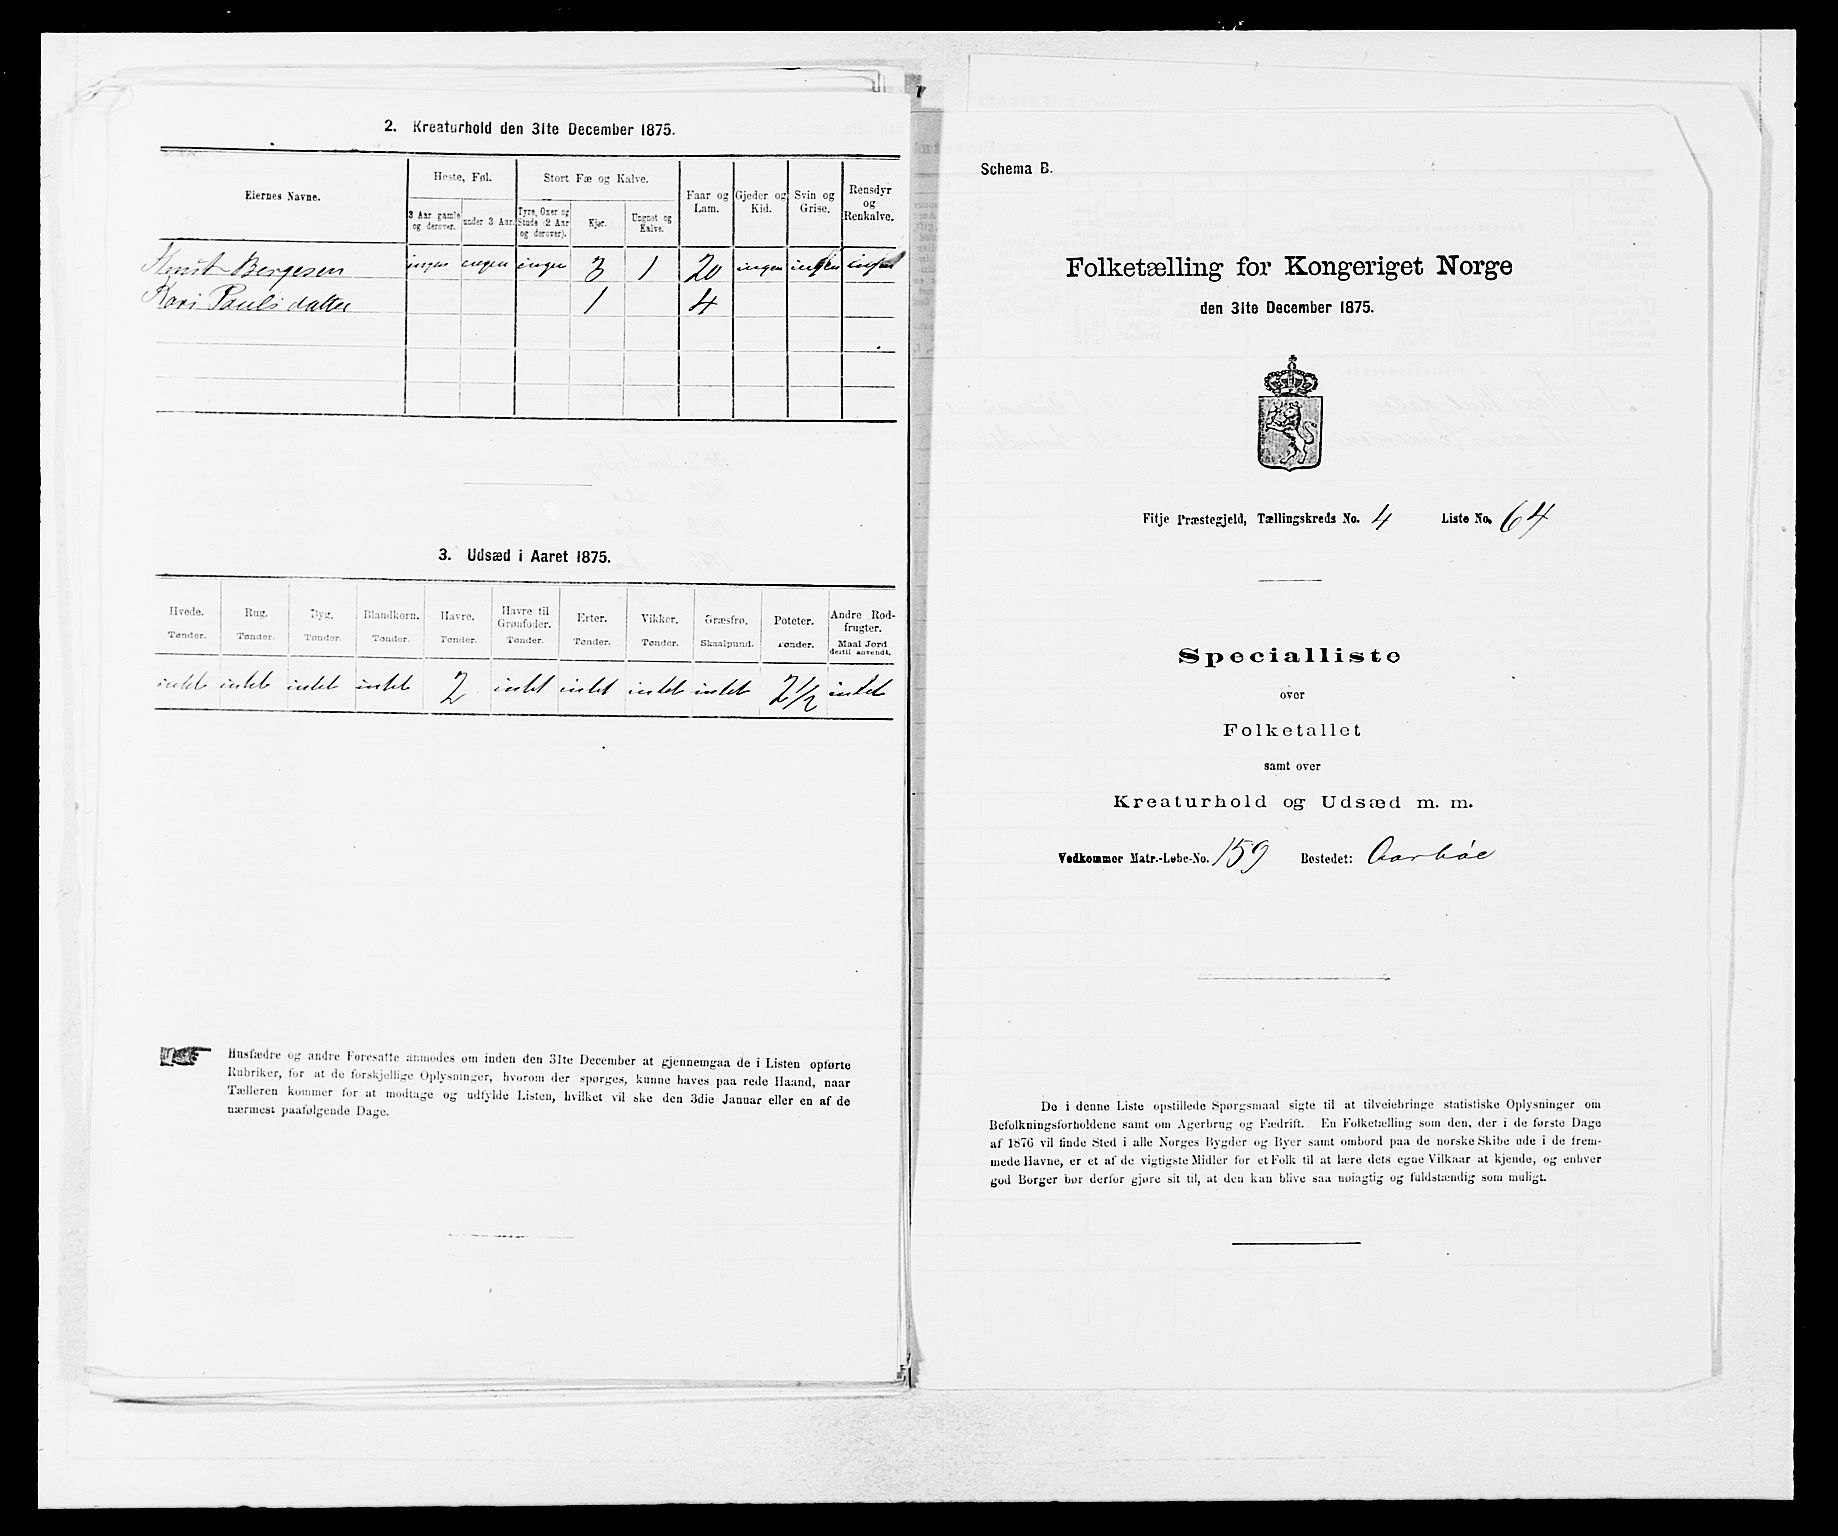 2. Kreaturhold den 31te December 1875.
Eiernes Navne.
Heste, Føl.
Stort Fæ og Kalve.
Faar og Lam.
Gjeder og Kid.
Svin og Grise.
Rensdyr og Renkalve.
3 Aar gamle og derover.
under 3 Aar.
Tyre, Oxer og Stude (2 Aar og derover).
Kjør.
Ungnøt og Kalve.
Knut Bergesen ingen ingen ingen 3 1 20 ingen ingen ingen
Kari Pauls datter 1 4
3. Udsæd i Aaret 1875.
Hvede. Rug. Byg. Blandkorn. Havre. Havre til Grønfoder. Erter. Vikker. Græsfrø. Poteter. Andre Rodfrugter.
Tønder. Tønder. Tønder. Tønder. Tønder. Tønder. Tønder. Tønder. Skaalpund. Tønder. Maal Jord dertil anvendt.
intet intet intet intet 2 intet intet intet intet 2½ intet
Husfædre og andre Foresatte anmodes om inden den 31te December at gjennemgaa de i Listen opførte
Rubriker, for at de forskjellige Oplysninger, hvorom der spørges, kunne haves paa rede Haand, naar
Tælleren kommer for at modtage og udfylde Listen, hvilket vil ske den 3die Januar eller en af de
nærmest paafølgende Dage.
Schema B.
Folketælling for Kongeriget Norge
den 31te December 1875.
Fitje Præstegjeld, Tællingskreds No. 4 Liste No. 64
Specialliste
over
Folketallet
samt over
Kreaturhold og Udsæd m. m.
Vedkommer Matr.-Løbe-No. 159 Bostedet: Aarbøe
De i denne Liste opstillede Spørgsmaal sigte til at tilveiebringe statistiske Oplysninger om
Befolkningsforholdene samt om Agerbrug og Fædrift. En Folketælling som den, der i de første Dage
af 1876 vil finde Sted i alle Norges Bygder og Byer samt ombord paa de norske Skibe ude i de frem-
mede Havne, er et af de vigtigste Midler for et Folk til at lære dets egne Vilkaar at kjende, og enhver
god Borger bør derfor gjøre sit til, at den kan blive saa nøiagtig og fuldstændig som muligt.